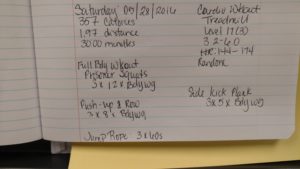 Saturday 05/28/2016
357 Calories
1.97 distance
30:00 minutes
Full Body Workout
Prisoner Squats
3 x 12 x Bdywg
Push-Up & Row
3 x 8 x Bdywg
Jump Rope 3 x 60s
Cardio Workout
Treadmill
Level 17 (3)
3.2-6.0
HR: 144-174
Random
Side Kick Plank
3 x 5 x Bdywg